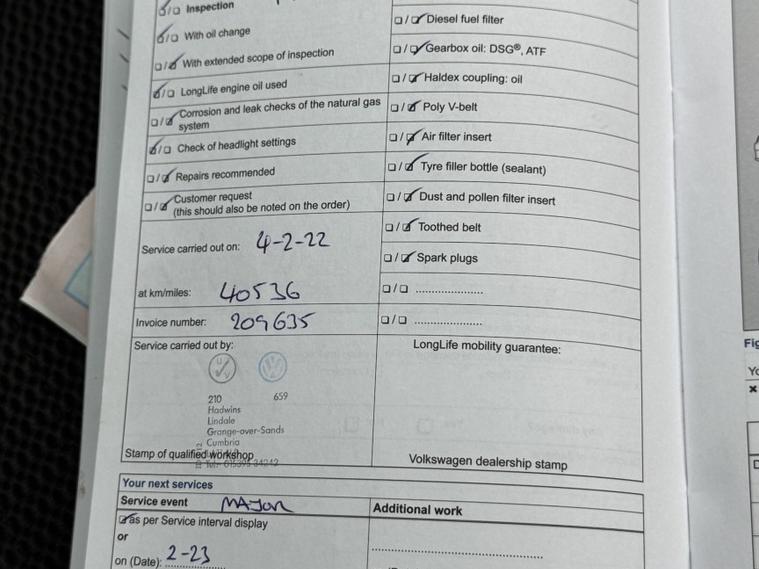 Inspection
With oil change
With extended scope of inspection
LongLife engine oil used
Corrosion and leak checks of the natural gas
system
Check of headlight settings
Repairs recommended
Customer request
(this should also be noted on the order)
Service carried out on: 4-2-22
at km/miles: 40536
Invoice number: 209635
Service carried out by:
210 659
Hadwins
Lindale
Grange-over-Sands
Cumbria
Stamp of qualified workshop
Diesel fuel filter
Gearbox oil: DSG®, ATF
Haldex coupling: oil
Poly V-belt
Air filter insert
Tyre filler bottle (sealant)
Dust and pollen filter insert
Toothed belt
Spark plugs
LongLife mobility guarantee:
Volkswagen dealership stamp
Your next services
Service event MAJOR
as per Service interval display
or
on (Date): 2-23
Additional work
Fig
Yo